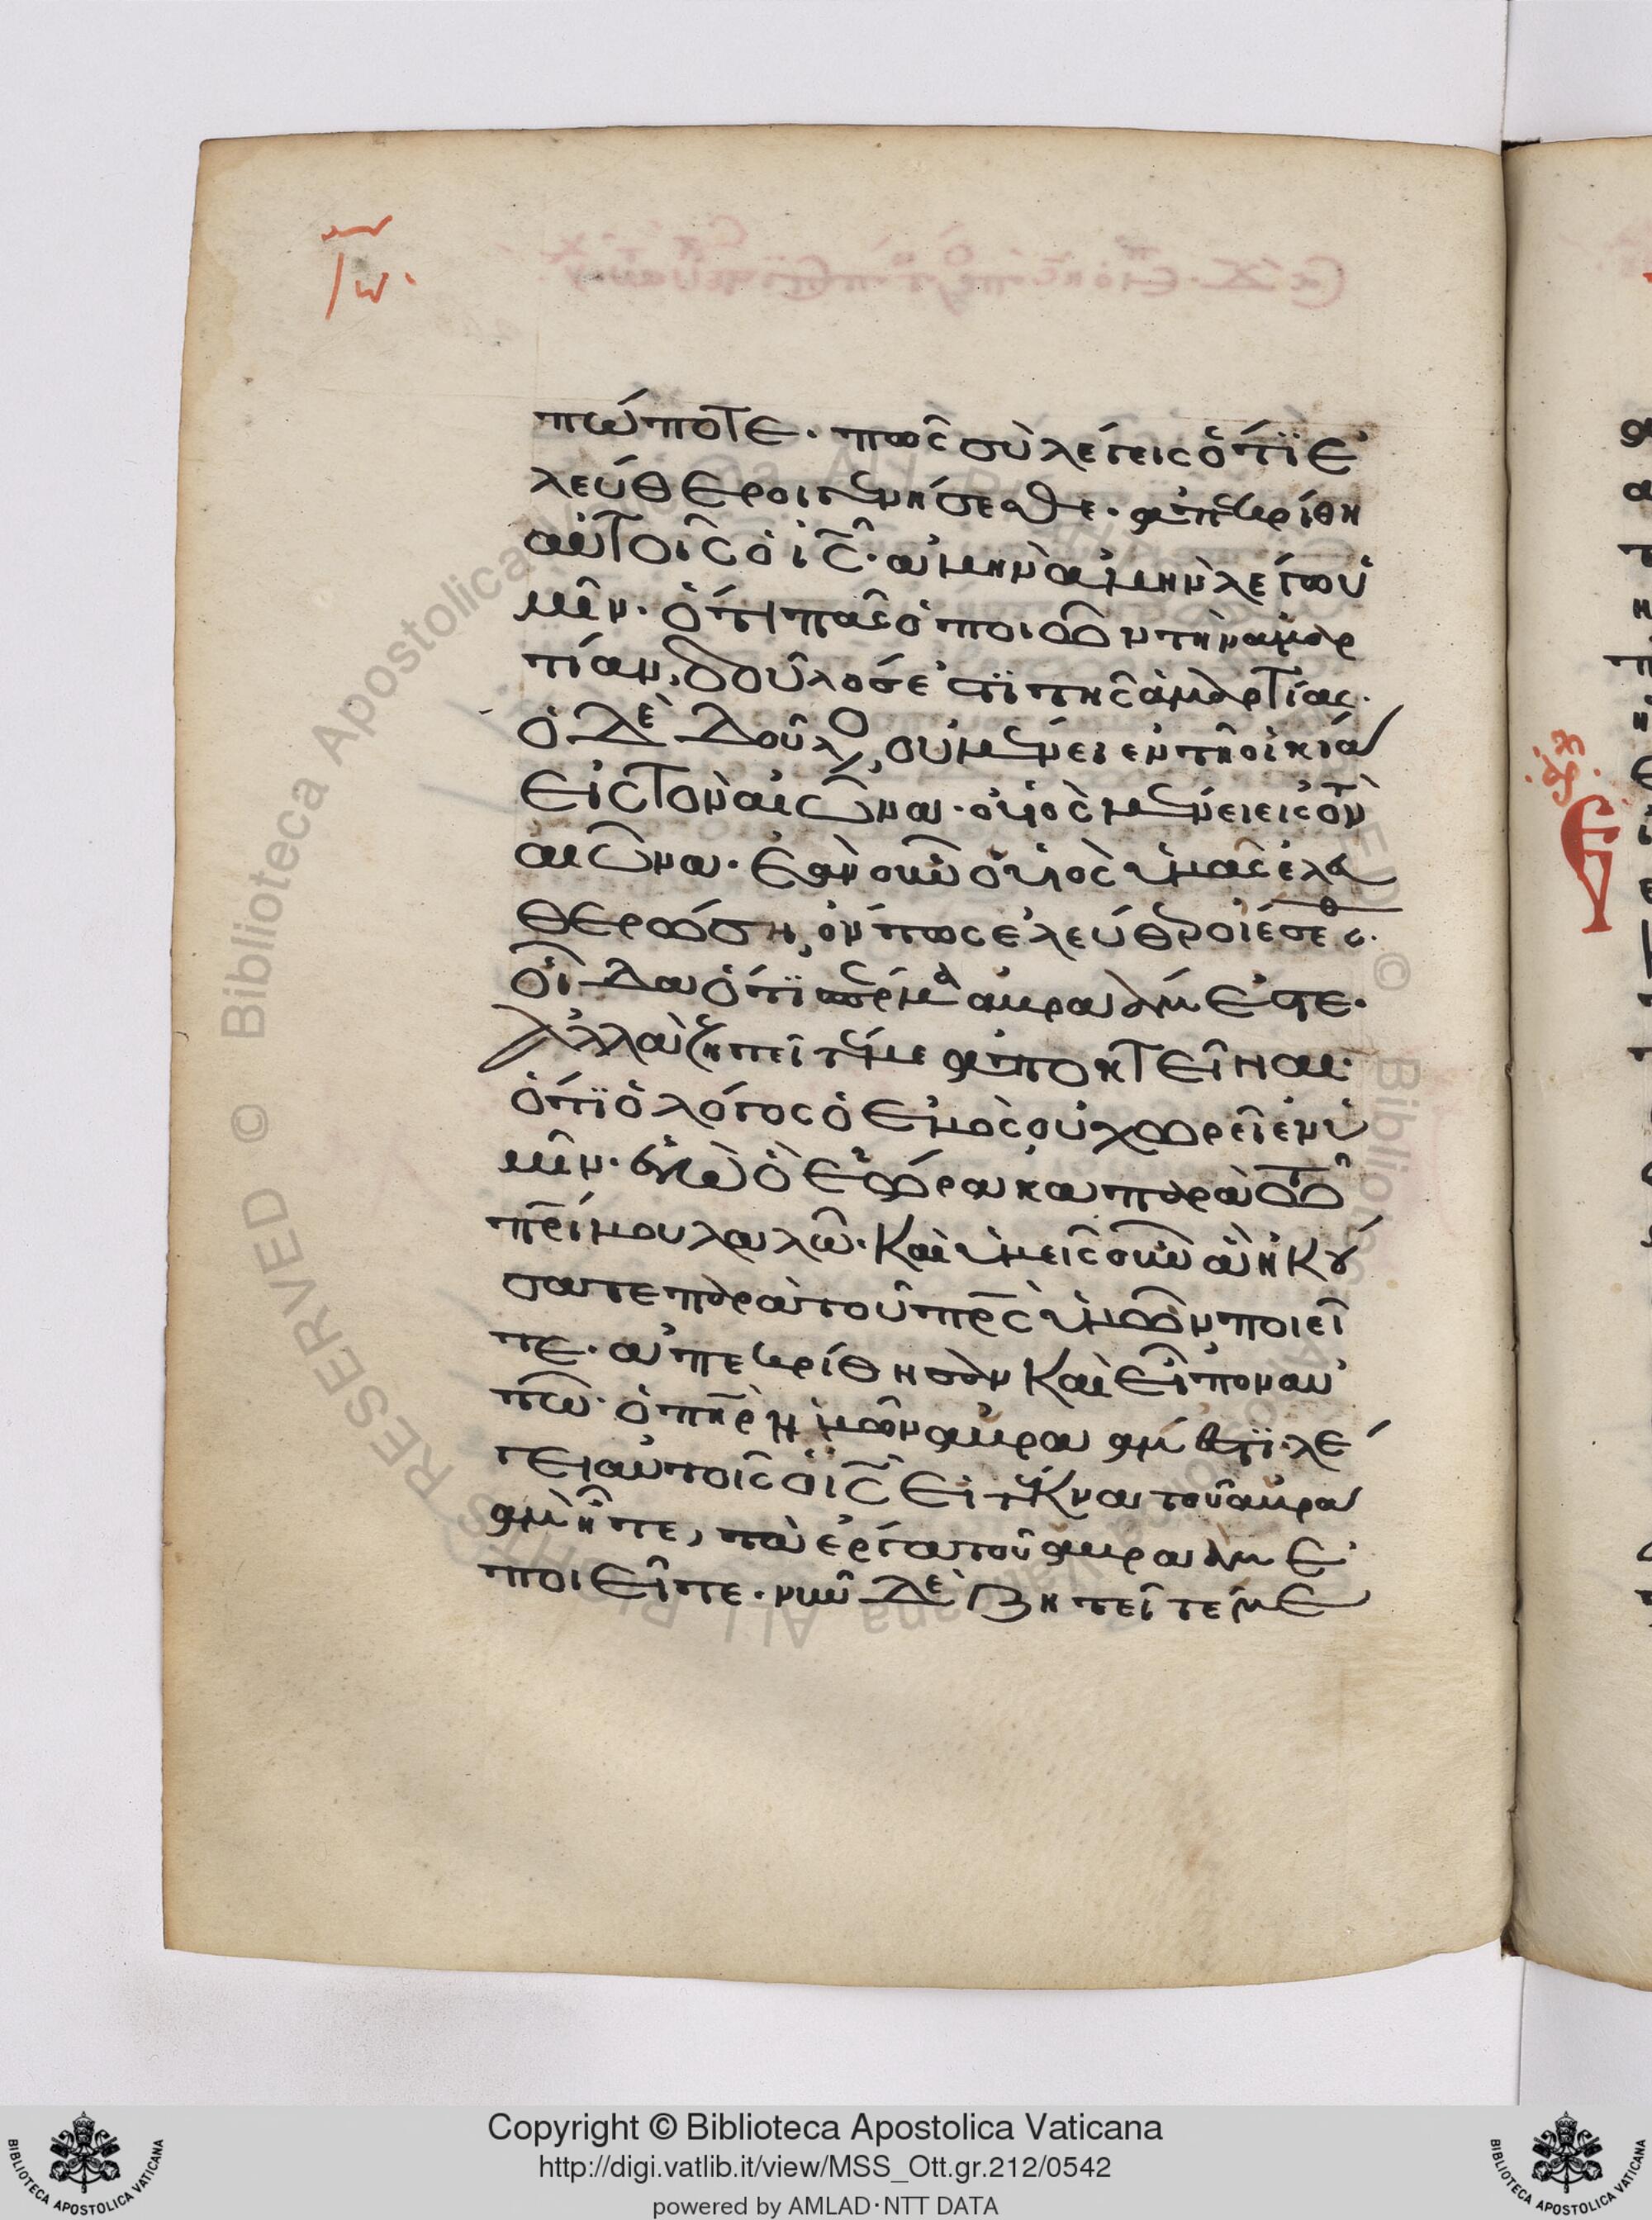 Ἰω.
πώποτε. πῶς σὺ λέγεις ὅτι ἐ
λεύθεροι γενήσεσθε. ἀπεκρίθη
αὐτοῖς ὁ ις. ἀμὴν ἀμὴν λέγω ὑ
μῖν. ὅτι πᾶς ὁ ποιῶν τὴν ἁμαρ
τίαν, δοῦλός ἐστι τῆς ἁμαρτίας.
ὁ δὲ δοῦλος, οὐ μένει ἐν τῆ οἰκία
εἰς τὸν αἰῶνα. ὁ υἱὸς μένει εἰς τὸν
αἰῶνα. ἐὰν οὖν ὁ υἱὸς ὑμᾶς ἐλευ
θερώση, ὄντως ἐλεύθεροι ἔσεσθε.
οἶδα ὅτι σπέρμα ἀβραάμ ἐστε.
ἀλλὰ ζητεῖτέ με ἀποκτεῖναι.
ὅτι ὁ λόγος ὁ ἐμὸς οὐ χωρεῖ ἐν ὑ
μῖν. ἐγὼ ὃ ἑώρακα παρὰ τῶ
πρί μου λαλῶ. καὶ ὑμεῖς οὖν ἃ ἠκού
σατε παρὰ τοῦ πρς ὑμῶν ποιεῖ
τε. ἀπεκρίθησαν καὶ εἶπον αὐ
τῶ. ὁ πηρ ἡμῶν ἀβραάμ ἐστι. λέ
γει αὐτοῖς ὁ ις εἰ τέκνα τοῦ ἀβρα
ὰμ ἦτε, τὰ ἔργα τοῦ ἀβραὰμ ἐ
ποιεῖτε. νῦν δὲ ζητεῖτέ με
Copyright © Biblioteca Apostolica Vaticana
http://digi.vatlib.it/view/MSS_Ott.gr.212/0542
powered by AMLAD·NTT DATA